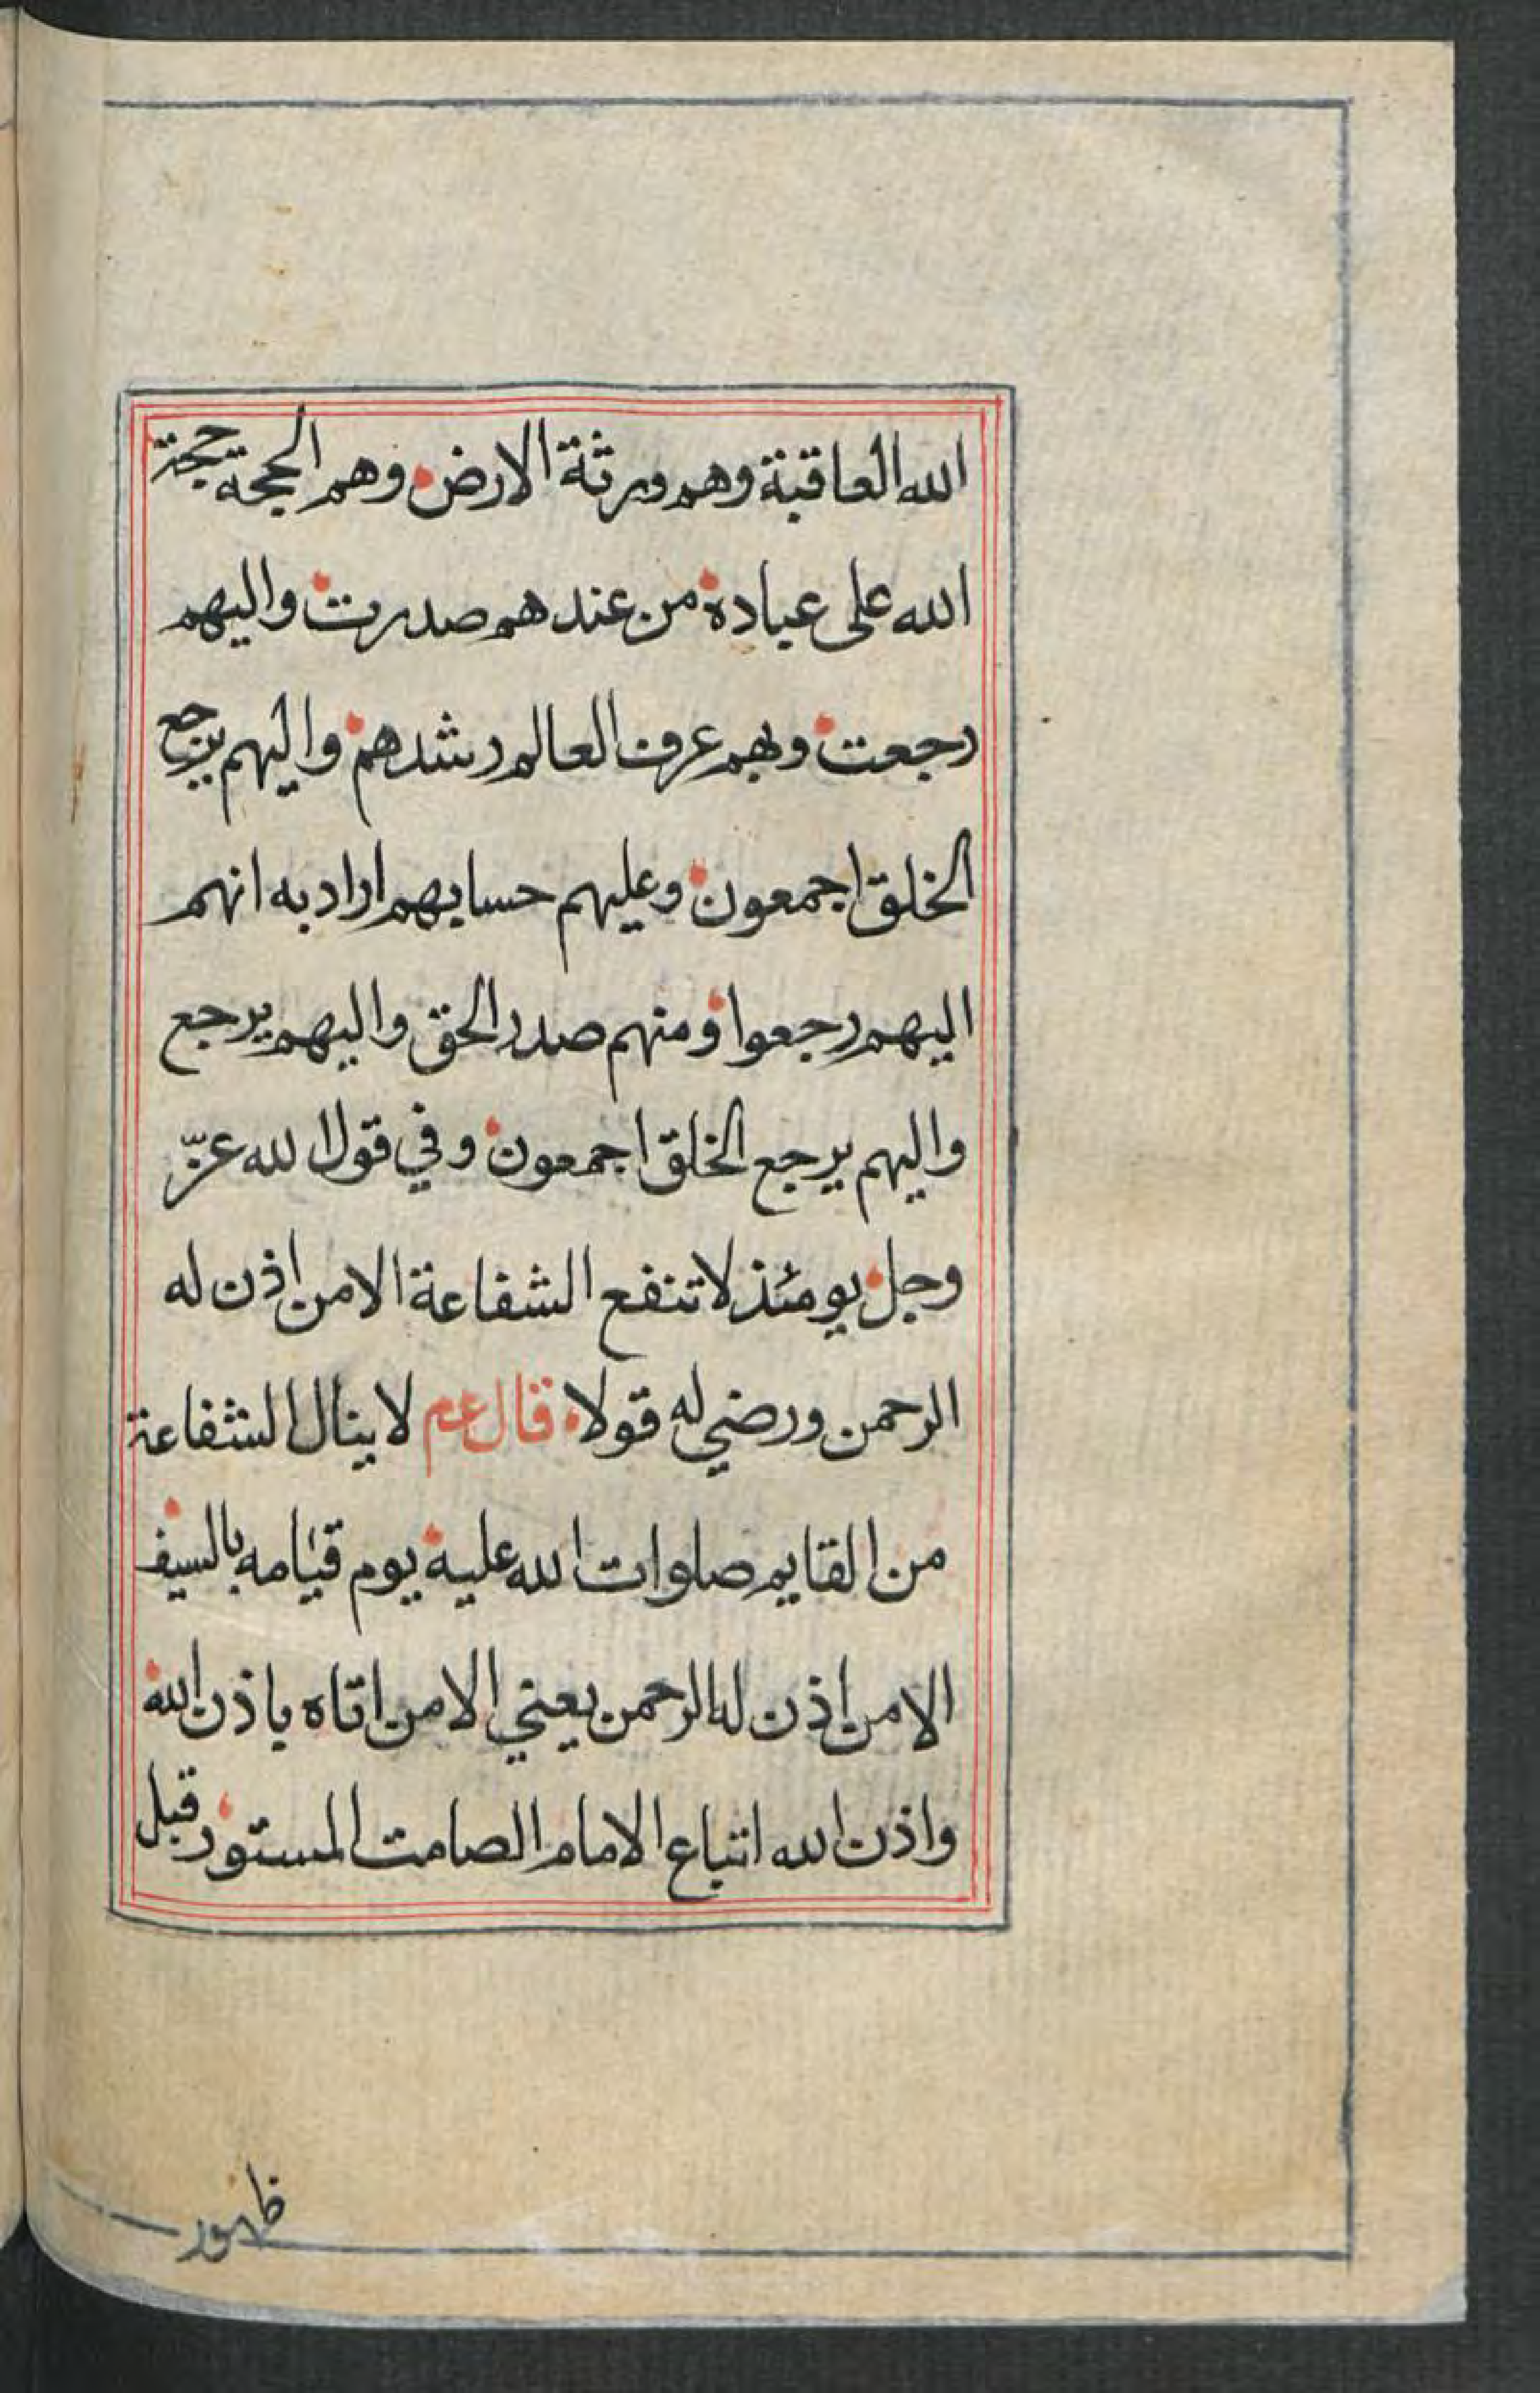 الله العاقبة وهم ورثة الارض وهم الحجة حجة
الله على عباده من عندهم صدرت واليهم
رجعت وبهم عرف العالم رشدهم واليهم يرجع
الخلق اجمعون وعليهم حسابهم اراد به انهم
اليهم رجعوا ومنهم صدر الحق واليهم يرجع
واليهم يرجع الخلق اجمعون وفي قول الله عزّ
وجل يومئذ لا تنفع الشفاعة الا من اذن له
الرحمن ورضي له قولا قال عم لا ينال الشفاعة
من القايم صلوات الله عليه يوم قيامه بالسيف
الا من اذن له الرحمن يعني الا من اتاه باذن الله
واذن الله اتباع الامام الصامت المستور قبل
ظهور